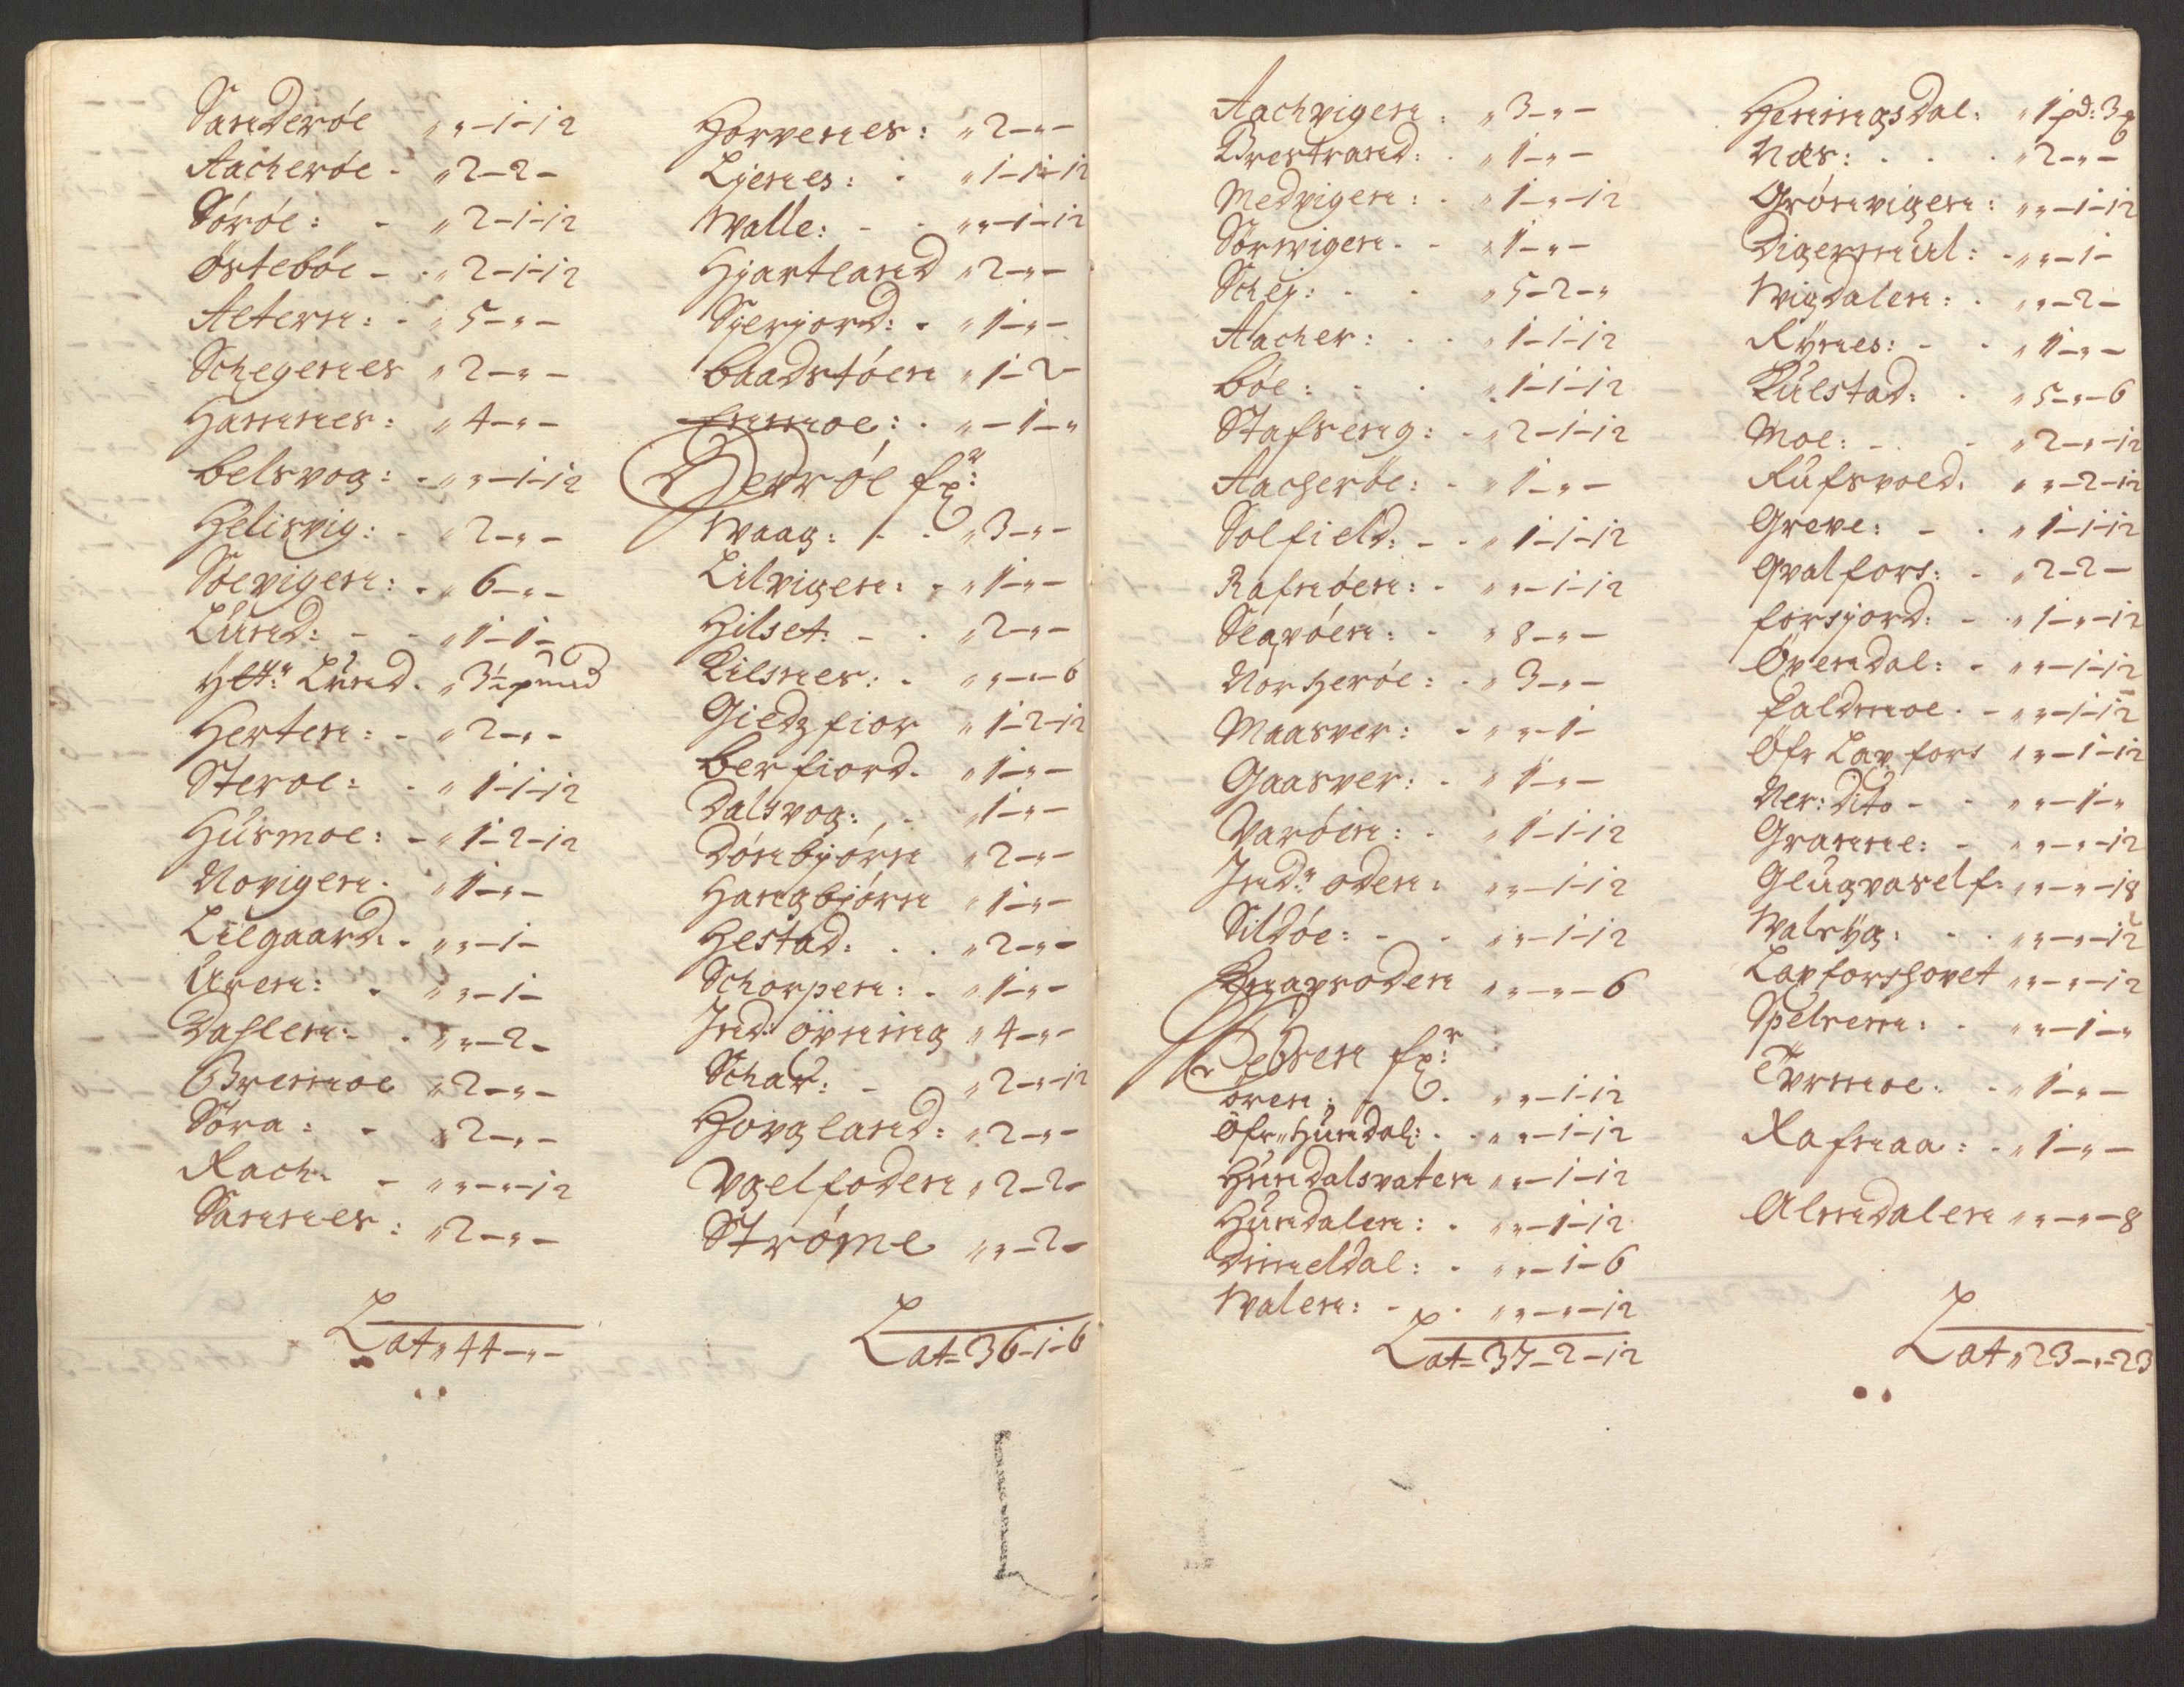 Sanderöe „ „-1-12
Aacheröe - „ 2-2-
Söröe: - „ 2-1-12
Östeböe - „ 2-1-12
Aetern: - „ 5-„-
Schegenes „ 2-„-
Hammnes: „ 4-„-
Belsvog: - „ „-1-12
Helisvig: - „ 2-„-
Söevigen: - „ 6-„-
Lund: - - „ 1-1-
Lund. „ 3½ pund
Herten: - „ 2-„-
Steroe: - „ 1-1-12
Husmoe: - „ 1-2-12
Novigen. „ 1-„-
Lilgaard: - „ „-1-
Uren: - „ „-1-
Dahlen: - „ „-2-
Bremoe „ 2-„-
Söra: - „ 2-„-
Rach: - „ „-„-12
Sannes: „ 2-„-
Lat „ 44-„-
Horvenes: „ 2-„-
Ljenes: - „ 1-1-12
Walle: - - „ „-1-12
Hjartland „ 2-„-
Sperjord: - „ 1-„-
Baadstöen „ 1-2-
„-1-„
Herröe fr:
Waag: - - „ 3-„-
Lilvigen: - „ 1-„-
Hilset: - - „ 2-„-
Kilsnes: - „ „-„-6
Giedzfior „ 1-2-12
Berfiord. „ 1-„-
Dalsvog: - „ 1-„-
Dönbjörn „ 2-„-
Hangbjörn „ 1-„-
Hestad: - - „ 2-„-
Schorpen: - „ 1-„-
Ind: övning „ 4-„-
Schav: - „ 2-„-12
Hovgland: „ 2-„-
Vgelfoden „ 2-2-
Ströme „ „-2-
Lat= 36-1-6
Aachvigen: „ 3-„-
Brestrand: - „ 1-„-
Medvigen: - „ 1-„-12
Sörvigen - - „ 1-„-
Schej: - - „ 5-2-„
Aacher: - - „ 1-1-12
Böe: - - „ 1-1-12
Stafseng: - „ 2-1-12
Aacheröe: - „ 1-„-
Solfield: - - „ 1-1-12
Rafnöen: - „ „-1-12
Slapöen: - „ 8-„-
Norheröe: - „ 3-„-
Maasver: - „ „-1-
Gaasver: - „ 1-„-
Varöen: - „ 1-1-12
Indr oden: „ „-1-12
Sildöe: - - „ „-1-12
Knapsoden „ „-„-6
fr:
ören: - - „ „-1-12
Öfr „ Hundal: - „ „-1-12
Hundalsvaten „ „-1-12
Hundalen: - „ „-1-12
Dimeldal: - „ „-1-6
Walen: - - „ „-„-12
Lat= 37-2-12
Heningsdal: „ 1 pd: 3
Næs: - - - „ 2-„-
Grönvigen: „ „-1-12
Digermul: - „ „-1-
Wigdalen: - „ „-2-
Rynes: - - „ 1-„-
Kulstad: - „ 5-„-6
Moe: - - „ 2-„-12
Rufsvold. „ „-2-12
Greve: - - „ 1-1-12
Qvalfors: - „ 2-2-
Forsjord: - „ 1-„-12
Övendal: - „ „-1-12
Faldmoe. - „ „-1-12
Öfr Lavfors „ „-1-12
Ner: Dito - - „ „-1-„
Granne: - „ „-„-12
Glugvaself: „ „-„-18
Walryg: - - „ „-„-12
Lavforshovet „ „-„-12
Spelrem: - „ „-1-„
Tvrmoe: - „ 1-„-
Rafnaa: - „ 1-„-
Almdalen „ „-„-8
Lat „ 23-„-23